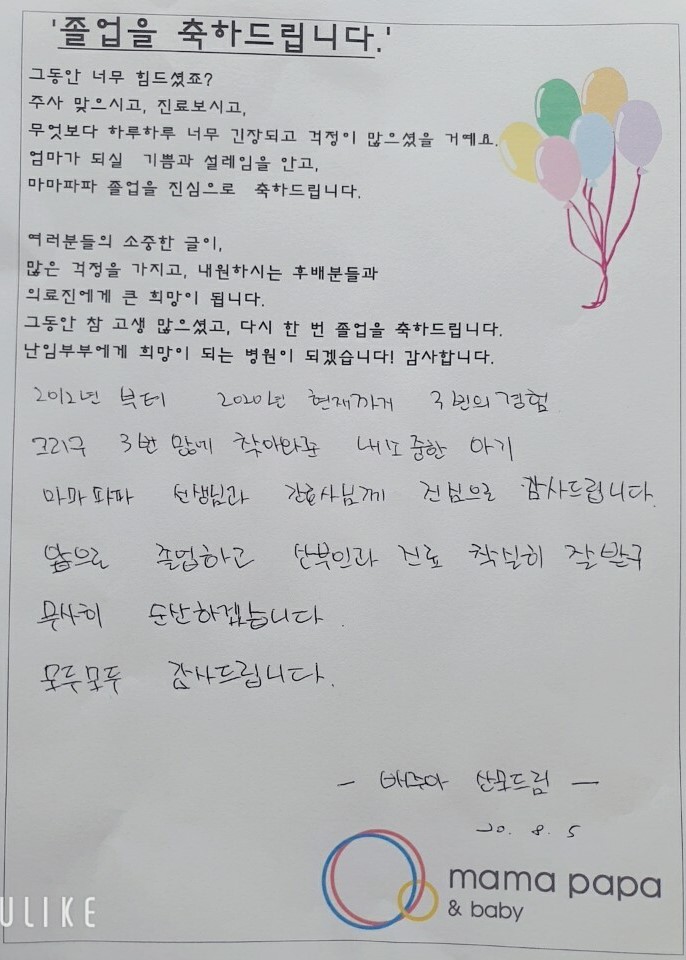 '졸업을 축하드립니다.'
그동안 너무 힘드셨죠?
주사 맞으시고, 진료보시고,
무엇보다 하루하루 너무 긴장되고 걱정이 많으셨을 거예요.
엄마가 되실 기쁨과 설레임을 안고,
마마파파 졸업을 진심으로 축하드립니다.
여러분들의 소중한 글이,
많은 걱정을 가지고, 내원하시는 후배분들과
의료진에게 큰 희망이 됩니다.
그동안 참 고생 많으셨고, 다시 한 번 졸업을 축하드립니다.
난임부부에게 희망이 되는 병원이 되겠습니다! 감사합니다.
2012년 부터 2020년 현재까지 3번의 경험
그리구 3번 만에 찾아와준 내 소중한 아기
마마파파 선생님과 간호사님께 진심으로 감사드립니다.
앞으로 졸업하고 산부인과 진료 착실히 잘 받구
무사히 순산하겠습니다.
모두모두 감사드립니다.
- 산모드림 -
20. 8. 5
mama papa
& baby
ULIKE